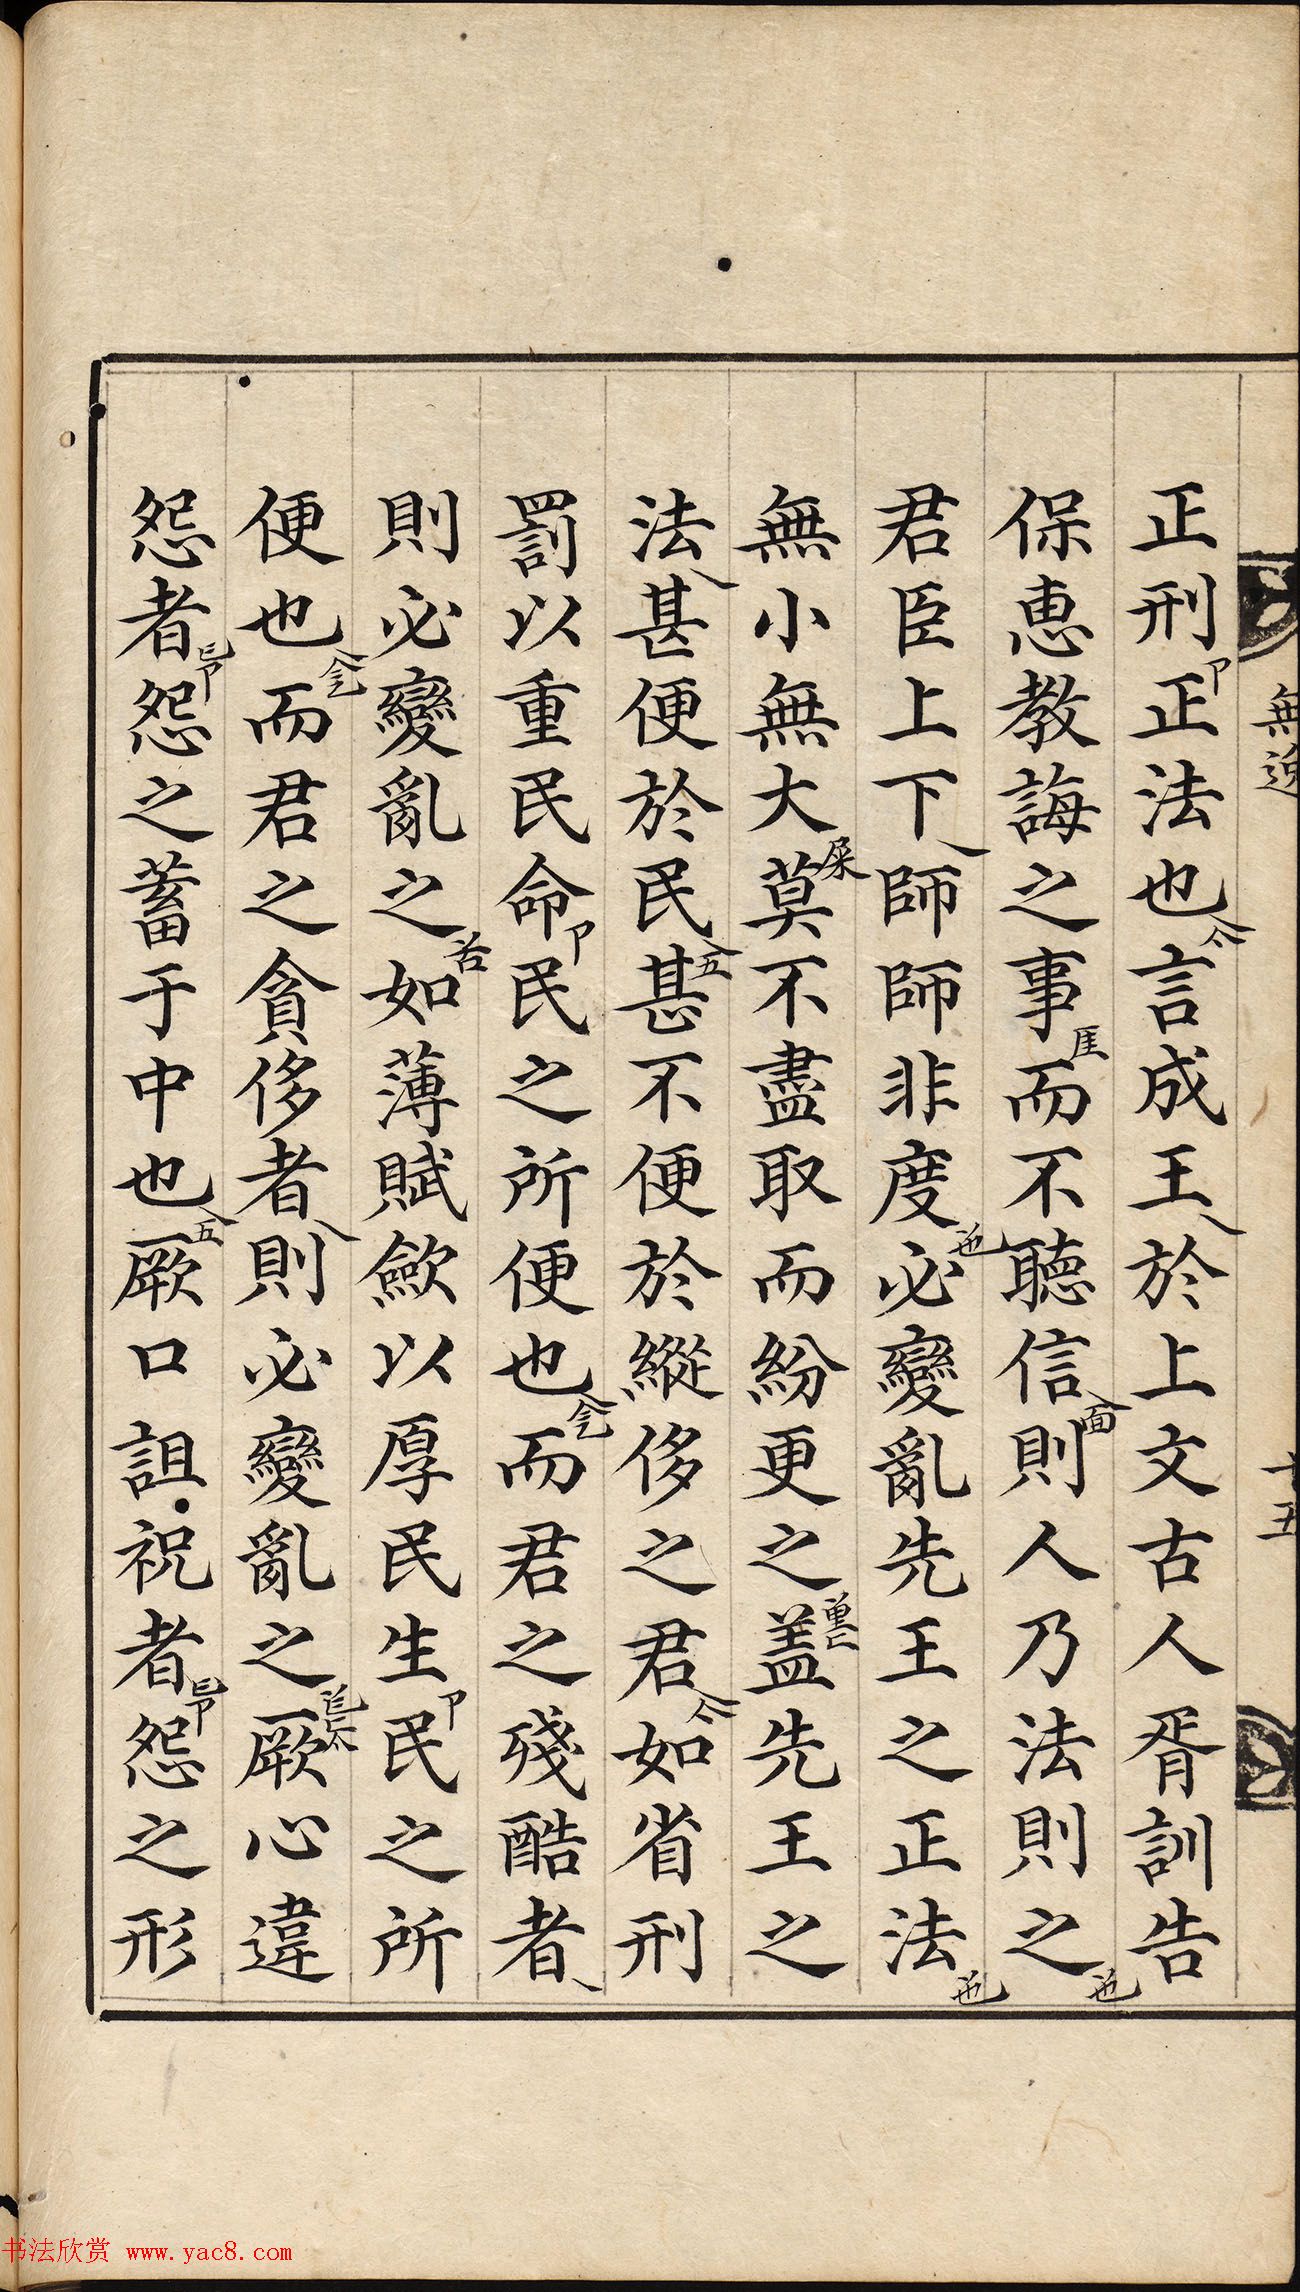 無逸
十五
正刑正法也言成王於上文古人胥訓告
保惠教誨之事而不聽信則人乃法則之
君臣上下師師非度必變亂先王之正法
無小無大莫不盡取而紛更之盖先王之
法甚便於民甚不便於縱侈之君如省刑
罰以重民命民之所便也而君之殘酷者
則必變亂之如薄賦歛以厚民生民之所
便也而君之貪侈者則必變亂之厥心違
怨者怨之蓄于中也厥口詛祝者怨之形
书法欣赏 www.yac8.com